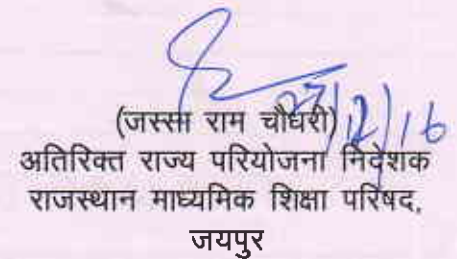 27/12/16
(जस्सा राम चौधरी)
अतिरिक्त राज्य परियोजना निदेशक
राजस्थान माध्यमिक शिक्षा परिषद,
जयपुर